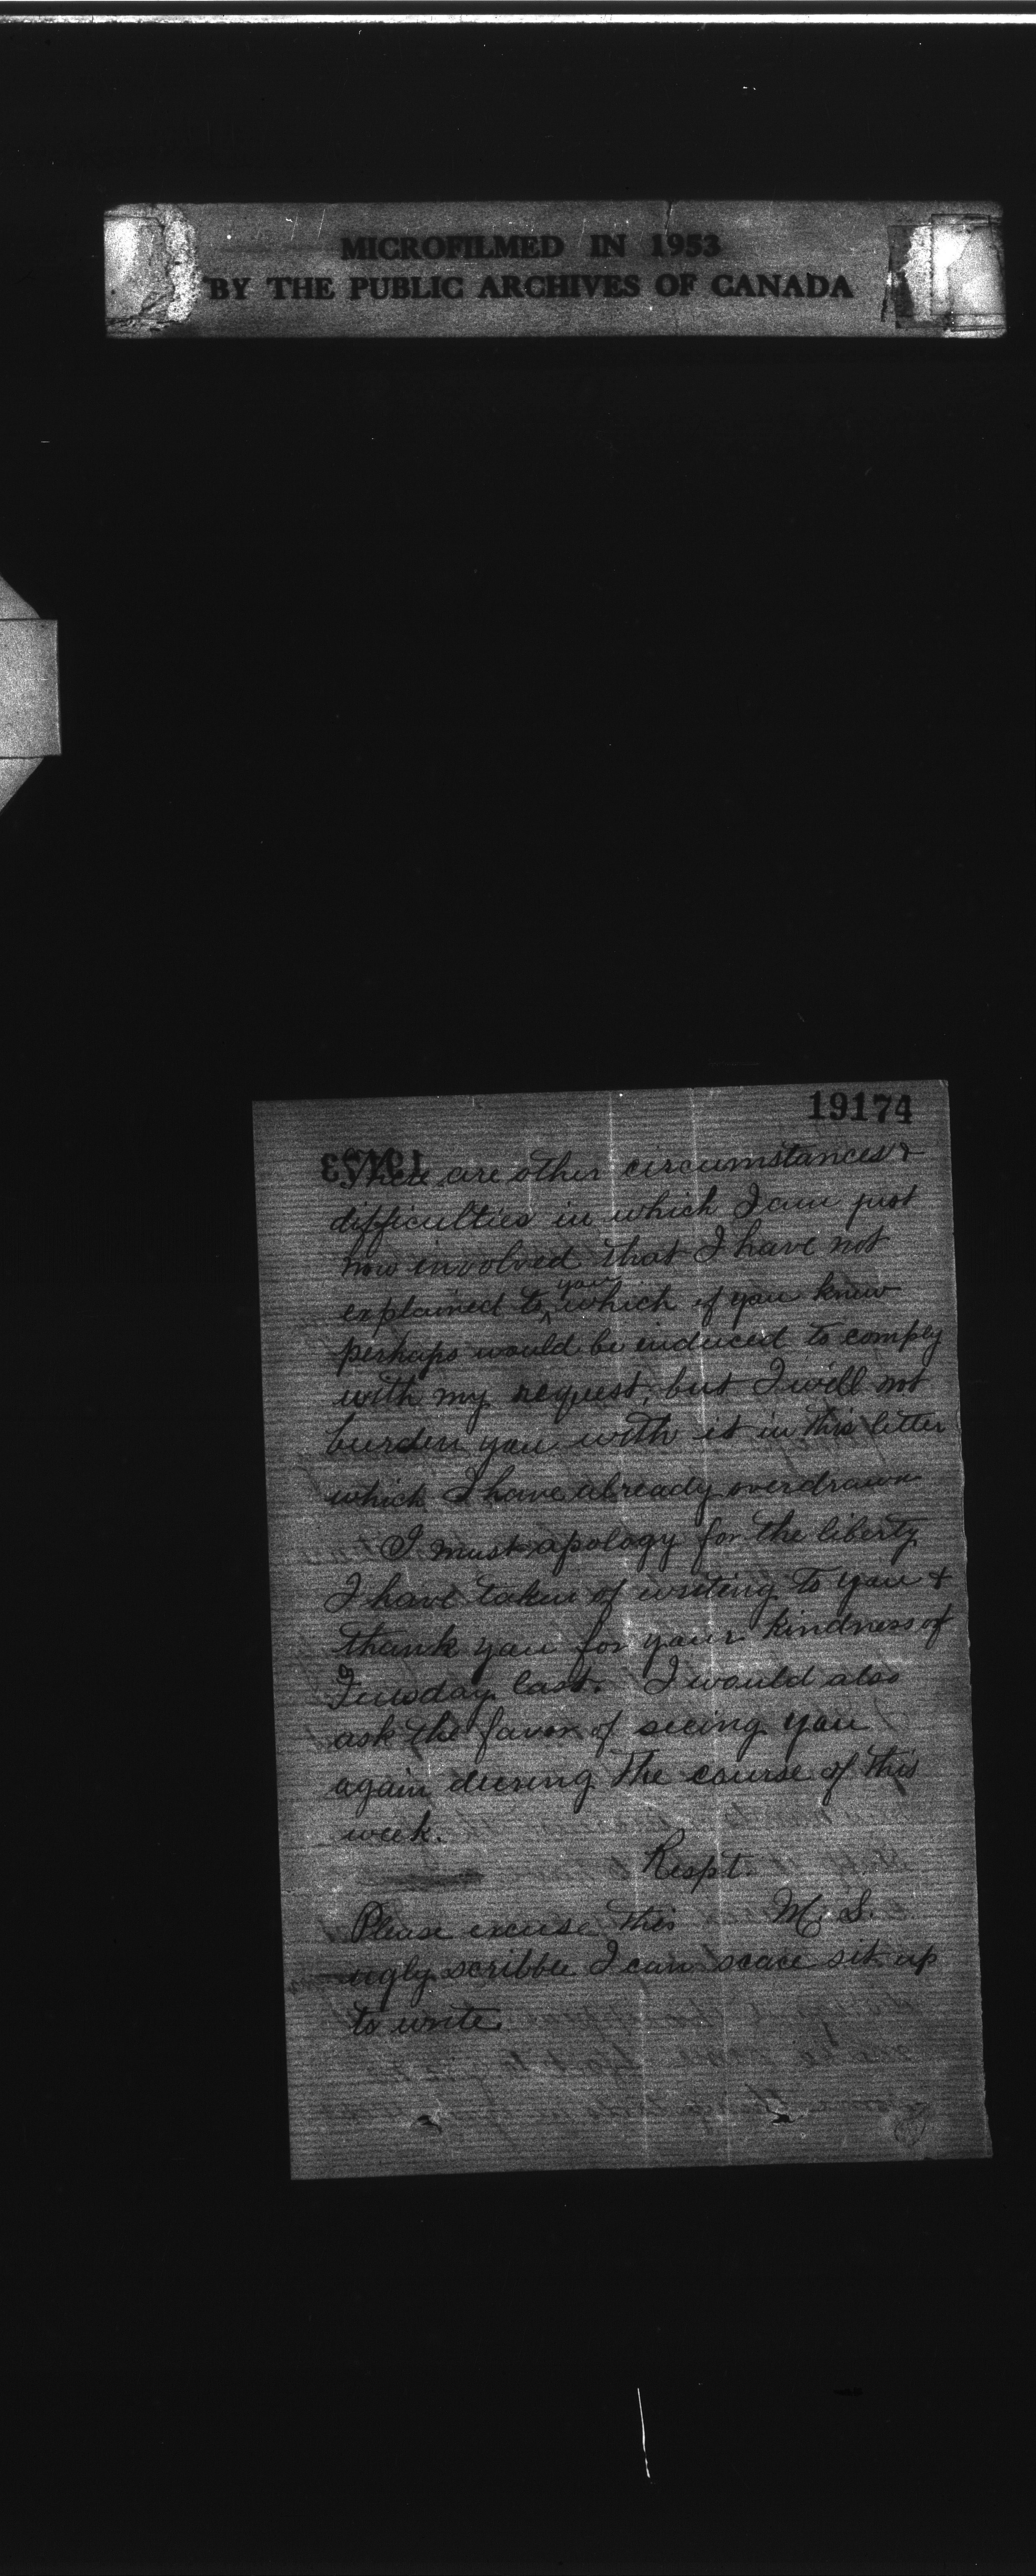 MICROFILMED IN 1953
BY THE PUBLIC ARCHIVES OF CANADA
19174
19173
There are other circumstances &
difficulties in which I am just
now involved that I have not
explained to you which if you knew
perhaps would be induced to comply
with my request, but I will not
burden you with it in this letter
which I have already overdrawn
I must apology for the liberty
I have taken of writing to you &
thank you for your kindness of
Tuesday last. I would also
ask the favor of seeing you
again during the course of this
week.
Respt.
M. S.
Please excuse this
ugly scribble I can scace sit up
to write